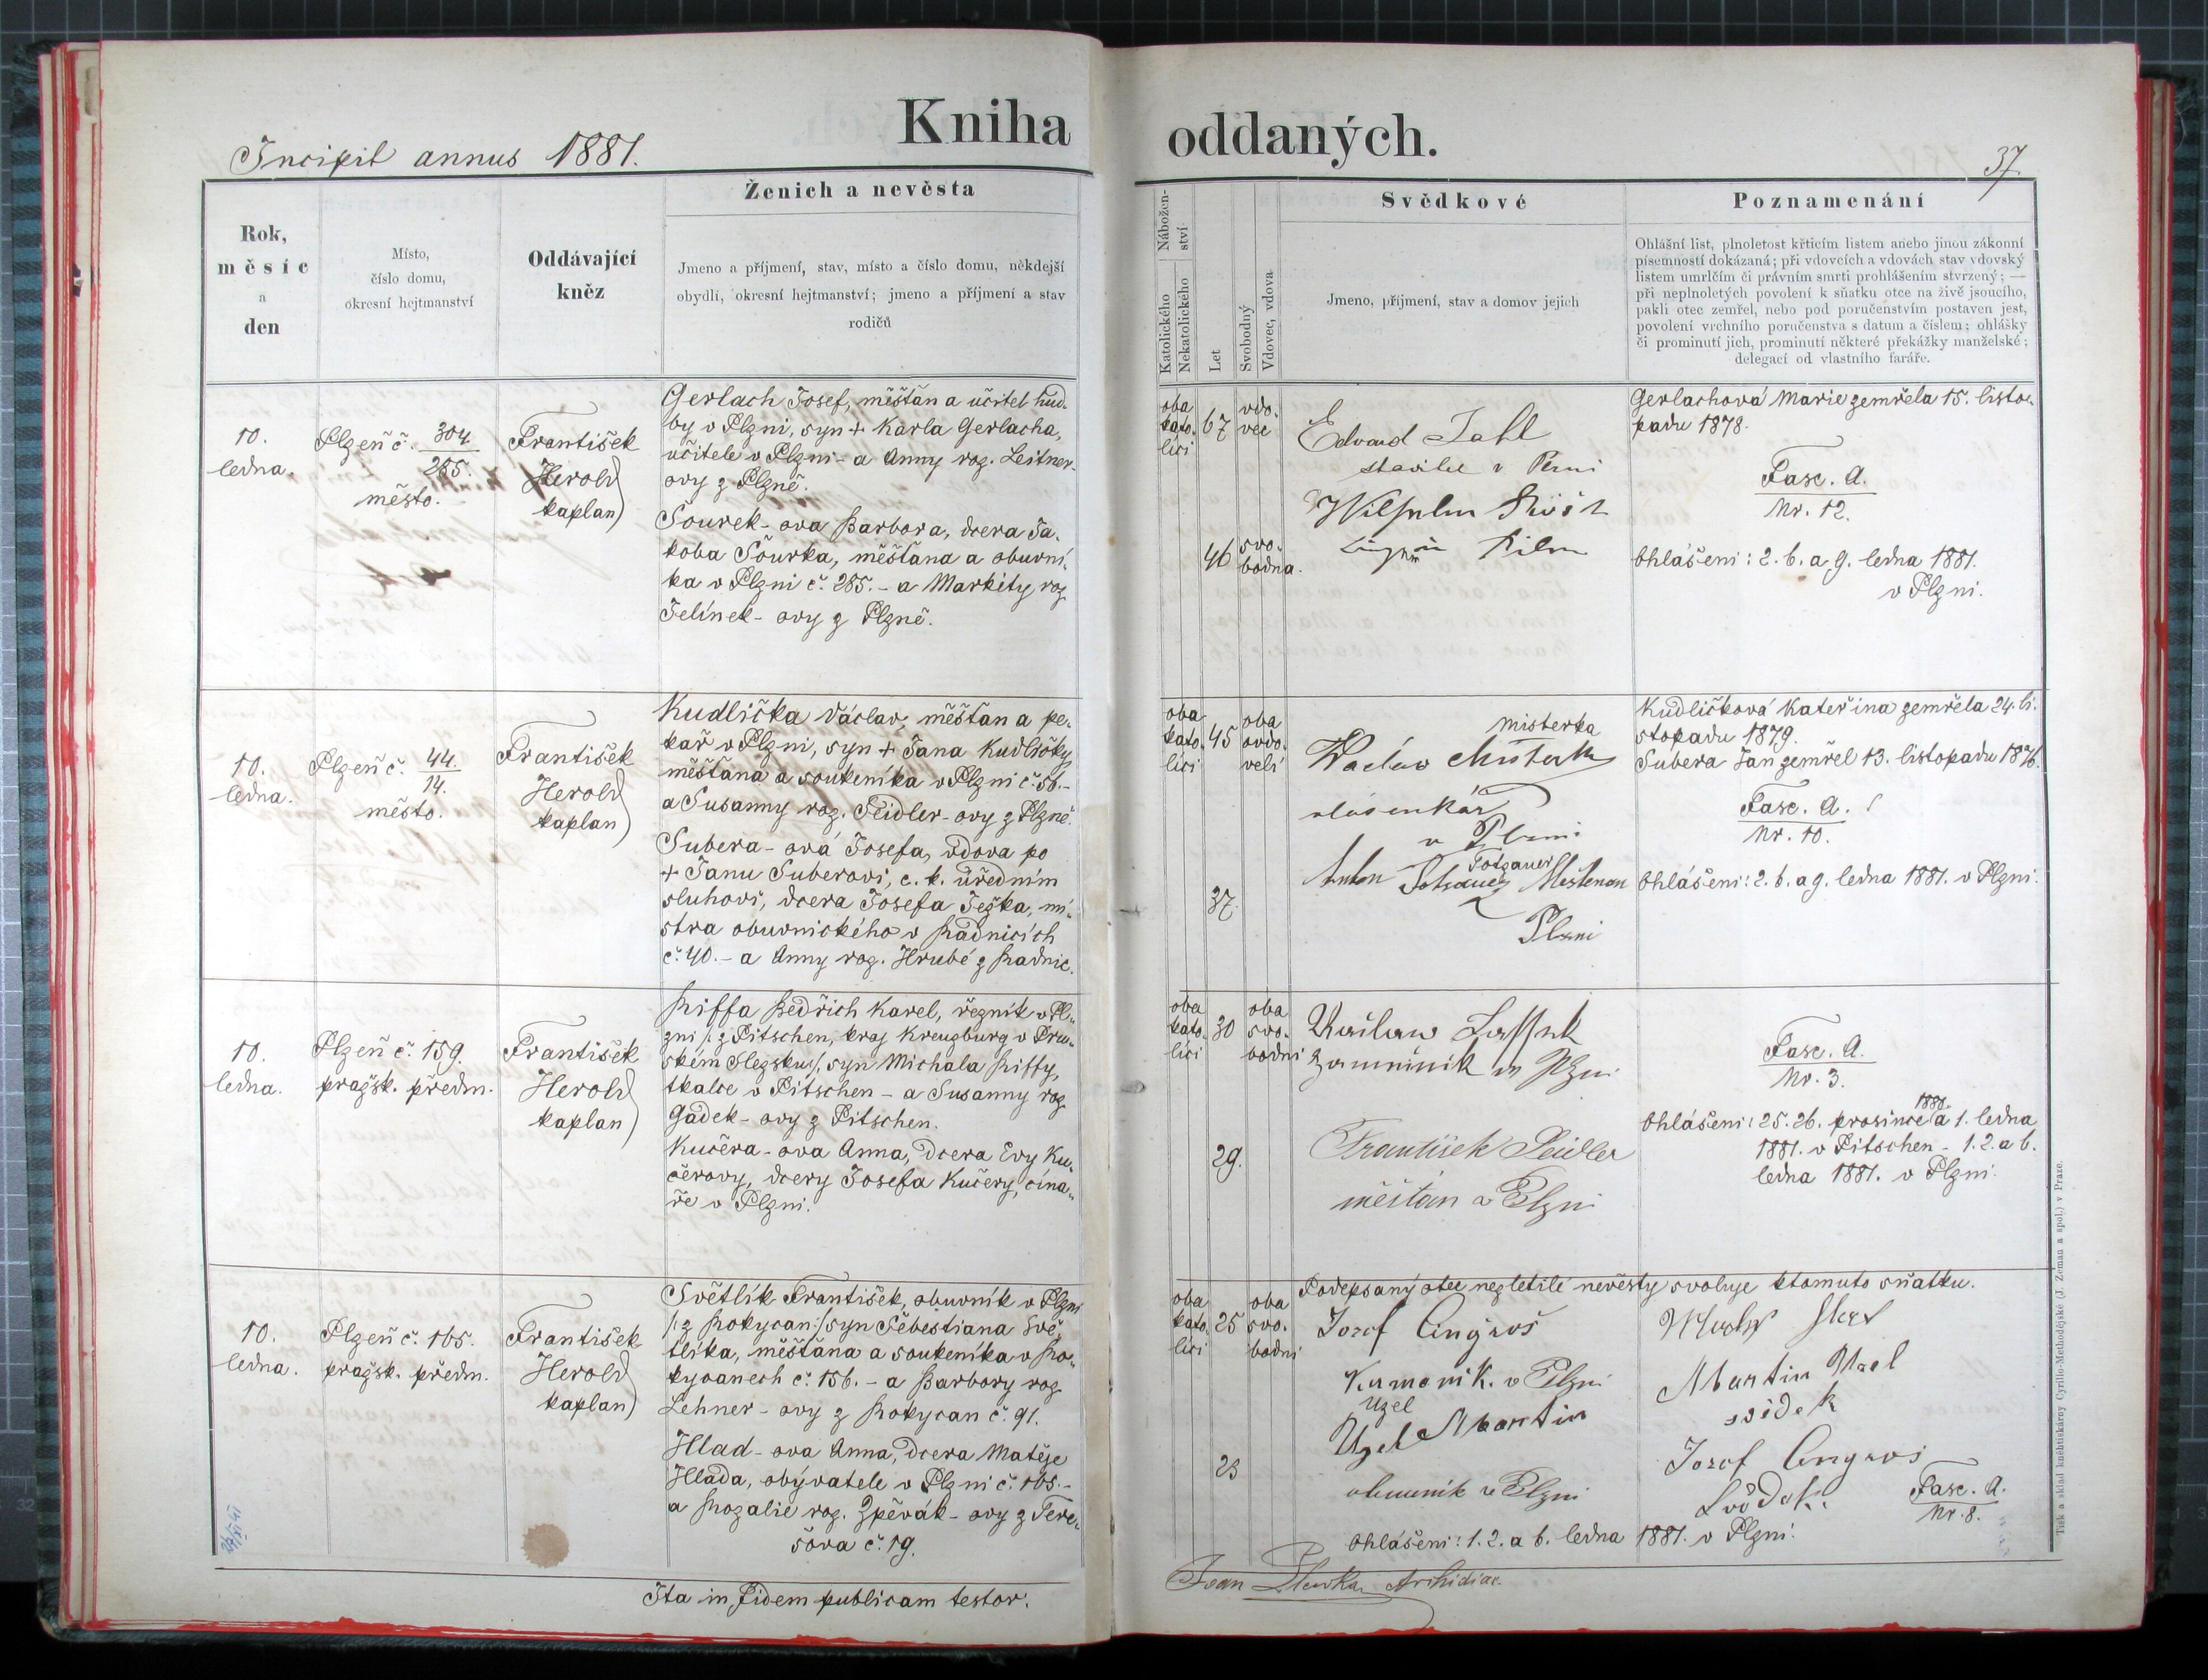 Kniha oddaných.
Incipit annus 1881.
37
Rok,
měsíc
a
den
Místo,
číslo domu,
okresní hejtmanství
Oddávající
kněz
Ženich a nevěsta
Jmeno a příjmení, stav, místo a číslo domu, někdejší
obydlí, okresní hejtmanství; jmeno a příjmení a stav
rodičů
Nábožen-
ství
Katolického
Nekatolického
Let
Svobodný
Vdovec, vdova
Svědkové
Jmeno, příjmení, stav a domov jejich
Poznamenání
Ohlášní list, plnoletost křticím listem anebo jinou zákonní
písemností dokázaná; při vdovcích a vdovách stav vdovský
listem umrlčím či právním smrti prohlášením stvrzený; —
při neplnoletých povolení k sňatku otce na živě jsoucího,
pakli otec zemřel, nebo pod poručenstvím postaven jest,
povolení vrchního poručenstva s datum a číslem; ohlášky
či prominutí jich, prominutí některé překážky manželské;
delegací od vlastního faráře.
10.
ledna.
Plzeň č. 304.
285.
město.
František
Herold
kaplan
Gerlach Josef, měšťan a učitel hud-
by v Plzni, syn + Karla Gerlacha,
učitele v Plzni - a Anny roz. Leitner-
ovy z Plzně.
Šourek - ova Barbora, dcera Ja-
koba Šourka, měšťana a obuvní-
ka v Plzni č. 285. - a Markéty roz
Jelínek - ovy z Plzně.
oba
kato-
líci
67
vdo-
vec
46
svo-
bodna.
Edvard
stavitel v Plzni
Wilhelm
Gerlachová Marie zemřela 15. listo-
padu 1878.
Fasc. A.
Nr. 12.
Ohlášeni: 2. 6. a 9. ledna 1881.
v Plzni.
10.
ledna.
Plzeň č. 44.
14.
město.
František
Herold
kaplan
Kudlička Václav, měšťan a pe-
kař v Plzni, syn + Jana Kudličky,
měšťana a soukeníka v Plzni č. 56. -
a Susanny roz. Peidler - ovy z Plzně.
Subera - ová Josefa, vdova po
+ Janu Suberovi, c. k. úředním
sluhovi, dcera Josefa Ježka, mi-
stra obuvnického v Radnicích
č. 40. - a Anny roz. Hrubé z Radnic.
oba
kato-
líci
45
oba
ovdo-
velí
37.
Misterka
Waclaw Misterka
v Plzni
Totzauer
Anton Totzauer
Plzni
Kudličková Kateřina zemřela 24. li-
stopadu 1879.
Subera Jan zemřel 13. listopadu 1876.
Fasc. A.
Nr. 10.
Ohlášeni: 2. 6. a 9. ledna 1881. v Plzni.
10.
ledna.
Plzeň č. 159.
pražsk. předm.
František
Herold
kaplan
Riffa Bedřich Karel, řezník v Pl-
zni /: z Pitschen, kraj Kreuzburg v Pru-
ském Slezsku :/, syn Michala Riffy,
tkalce v Pitschen - a Susanny roz
Gadek - ovy z Pitschen.
Kučera - ova Anna, dcera Evy Ku-
čerovy, dcery Josefa Kučery, cína-
ře v Plzni.
oba
kato-
líci
30
oba
svo-
bodni
29.
v Plzni
František Peidler
měšťan v Plzni
Fasc. A.
Nr. 3.
1880.
Ohlášeni: 25. 26. prosince a 1. ledna
1881. v Pitschen - 1. 2. a 6.
ledna 1881. v Plzni.
10.
ledna.
Plzeň č. 165.
pražsk. předm.
František
Herold
kaplan
Světlík František, obuvník v Plzni
/: z Rokycan :/ syn Šebestiana Svě-
tlíka, měšťana a soukeníka v Ro-
kycanech č. 156. - a Barbory roz
Lehner - ovy z Rokycan č. 91.
Hlad - ova Anna, dcera Matěje
Hlada, obývatele v Plzni č. 165. -
a Rozalie roz. Zpěvák - ovy z Tere-
šova č. 19.
oba
kato-
líci
25
oba
svo-
bodni
23
Podepsaný otec nezletilé nevěsty svoluje ktomuto sňatku.
Jozef Cingroš
v Plzni
Uzel
Uzel Martin
obuvník v Plzni
Martin Uzel
svidek
Jozef Cingros
Fasc. A.
Nr. 8.
Ohlášeni: 1. 2. a 6. ledna 1881. v Plzni.
Ita in fidem publicam testor.
Archidiac.
Tisk a sklad knihtiskárny Cyrillo-Methodějské (J. Zeman a spol.) v Praze.